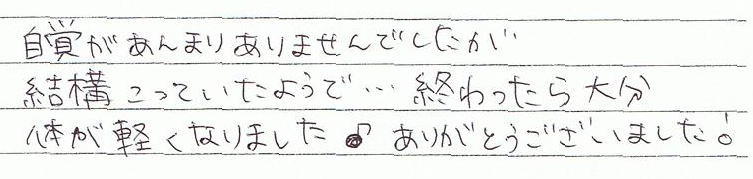 自覚があんまりありませんでしたが
結構こっていたようで…終わったら大分
体が軽くなりました♪ ありがとうございました!